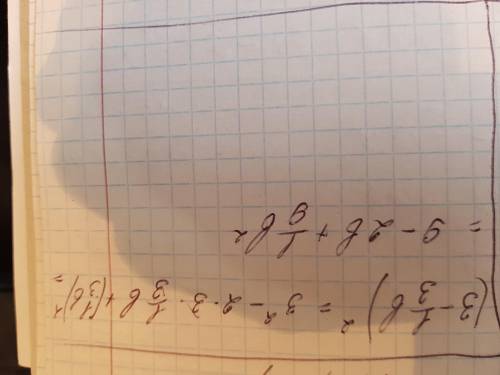 (3 - 1/3 b)² = 3² - 2 · 3 · 1/3 b + (1/3 b)² =
= 9 - 2b + 1/9 b²